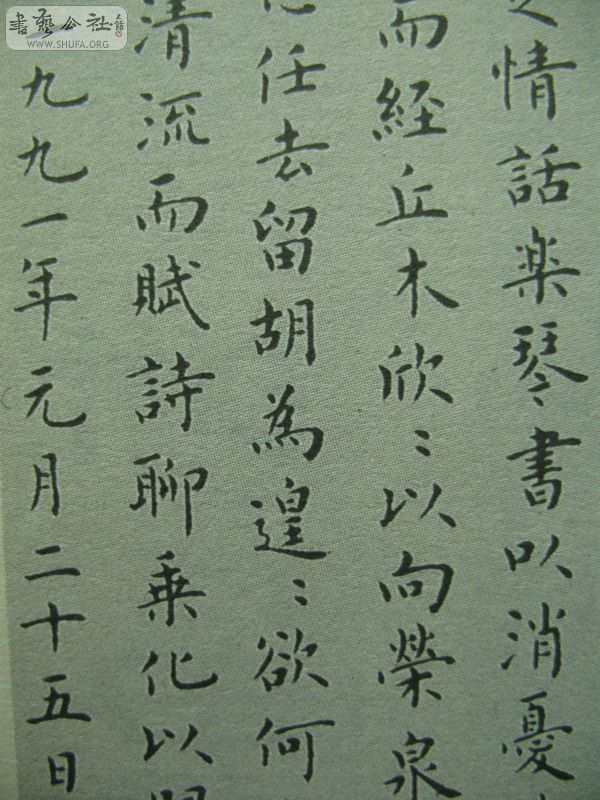 情話楽琴書以消憂
而經丘木欣〻以向榮泉
任去留胡為遑〻欲何
清流而賦詩聊乗化以
九九一年元月二十五日
書藝公社
WWW.SHUFA.ORG